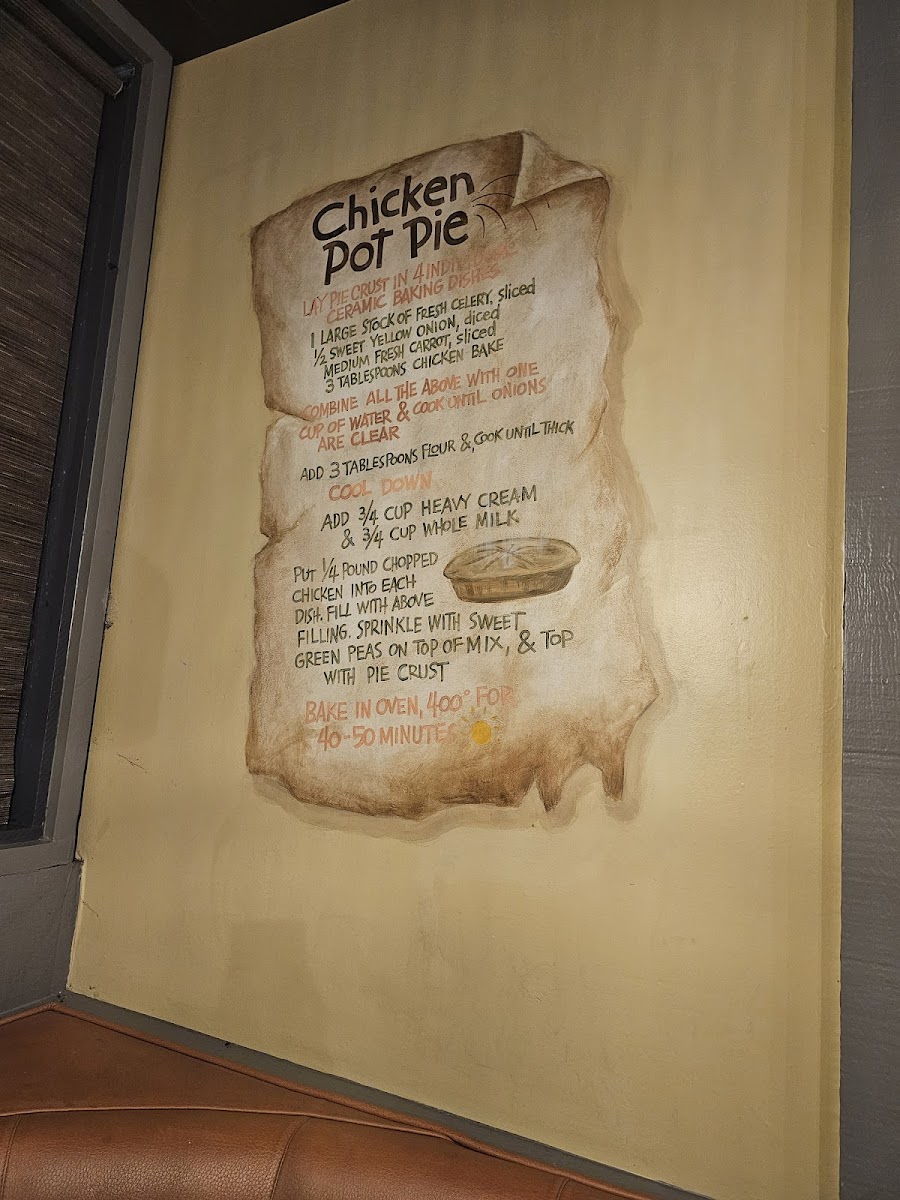 Chicken
Pot Pie
LAY PIE CRUST IN 4 INDIVIDUAL
CERAMIC BAKING DISHES.
1 LARGE STOCK OF FRESH CELERY, sliced
1/2 SWEET YELLOW ONION, diced
MEDIUM FRESH CARROT, sliced
3 TABLESPOONS CHICKEN BAKE
COMBINE ALL THE ABOVE WITH ONE
CUP OF WATER & COOK UNTIL ONIONS
ARE CLEAR
ADD 3 TABLESPOONS FLOUR & COOK UNTIL THICK
COOL DOWN
ADD 3/4 CUP HEAVY CREAM
& 3/4 CUP WHOLE MILK
PUT 1/4 POUND CHOPPED
CHICKEN INTO EACH
DISH. FILL WITH ABOVE
FILLING. SPRINKLE WITH SWEET
GREEN PEAS ON TOP OF MIX, & TOP
WITH PIE CRUST
BAKE IN OVEN, 400° FOR
40-50 MINUTES